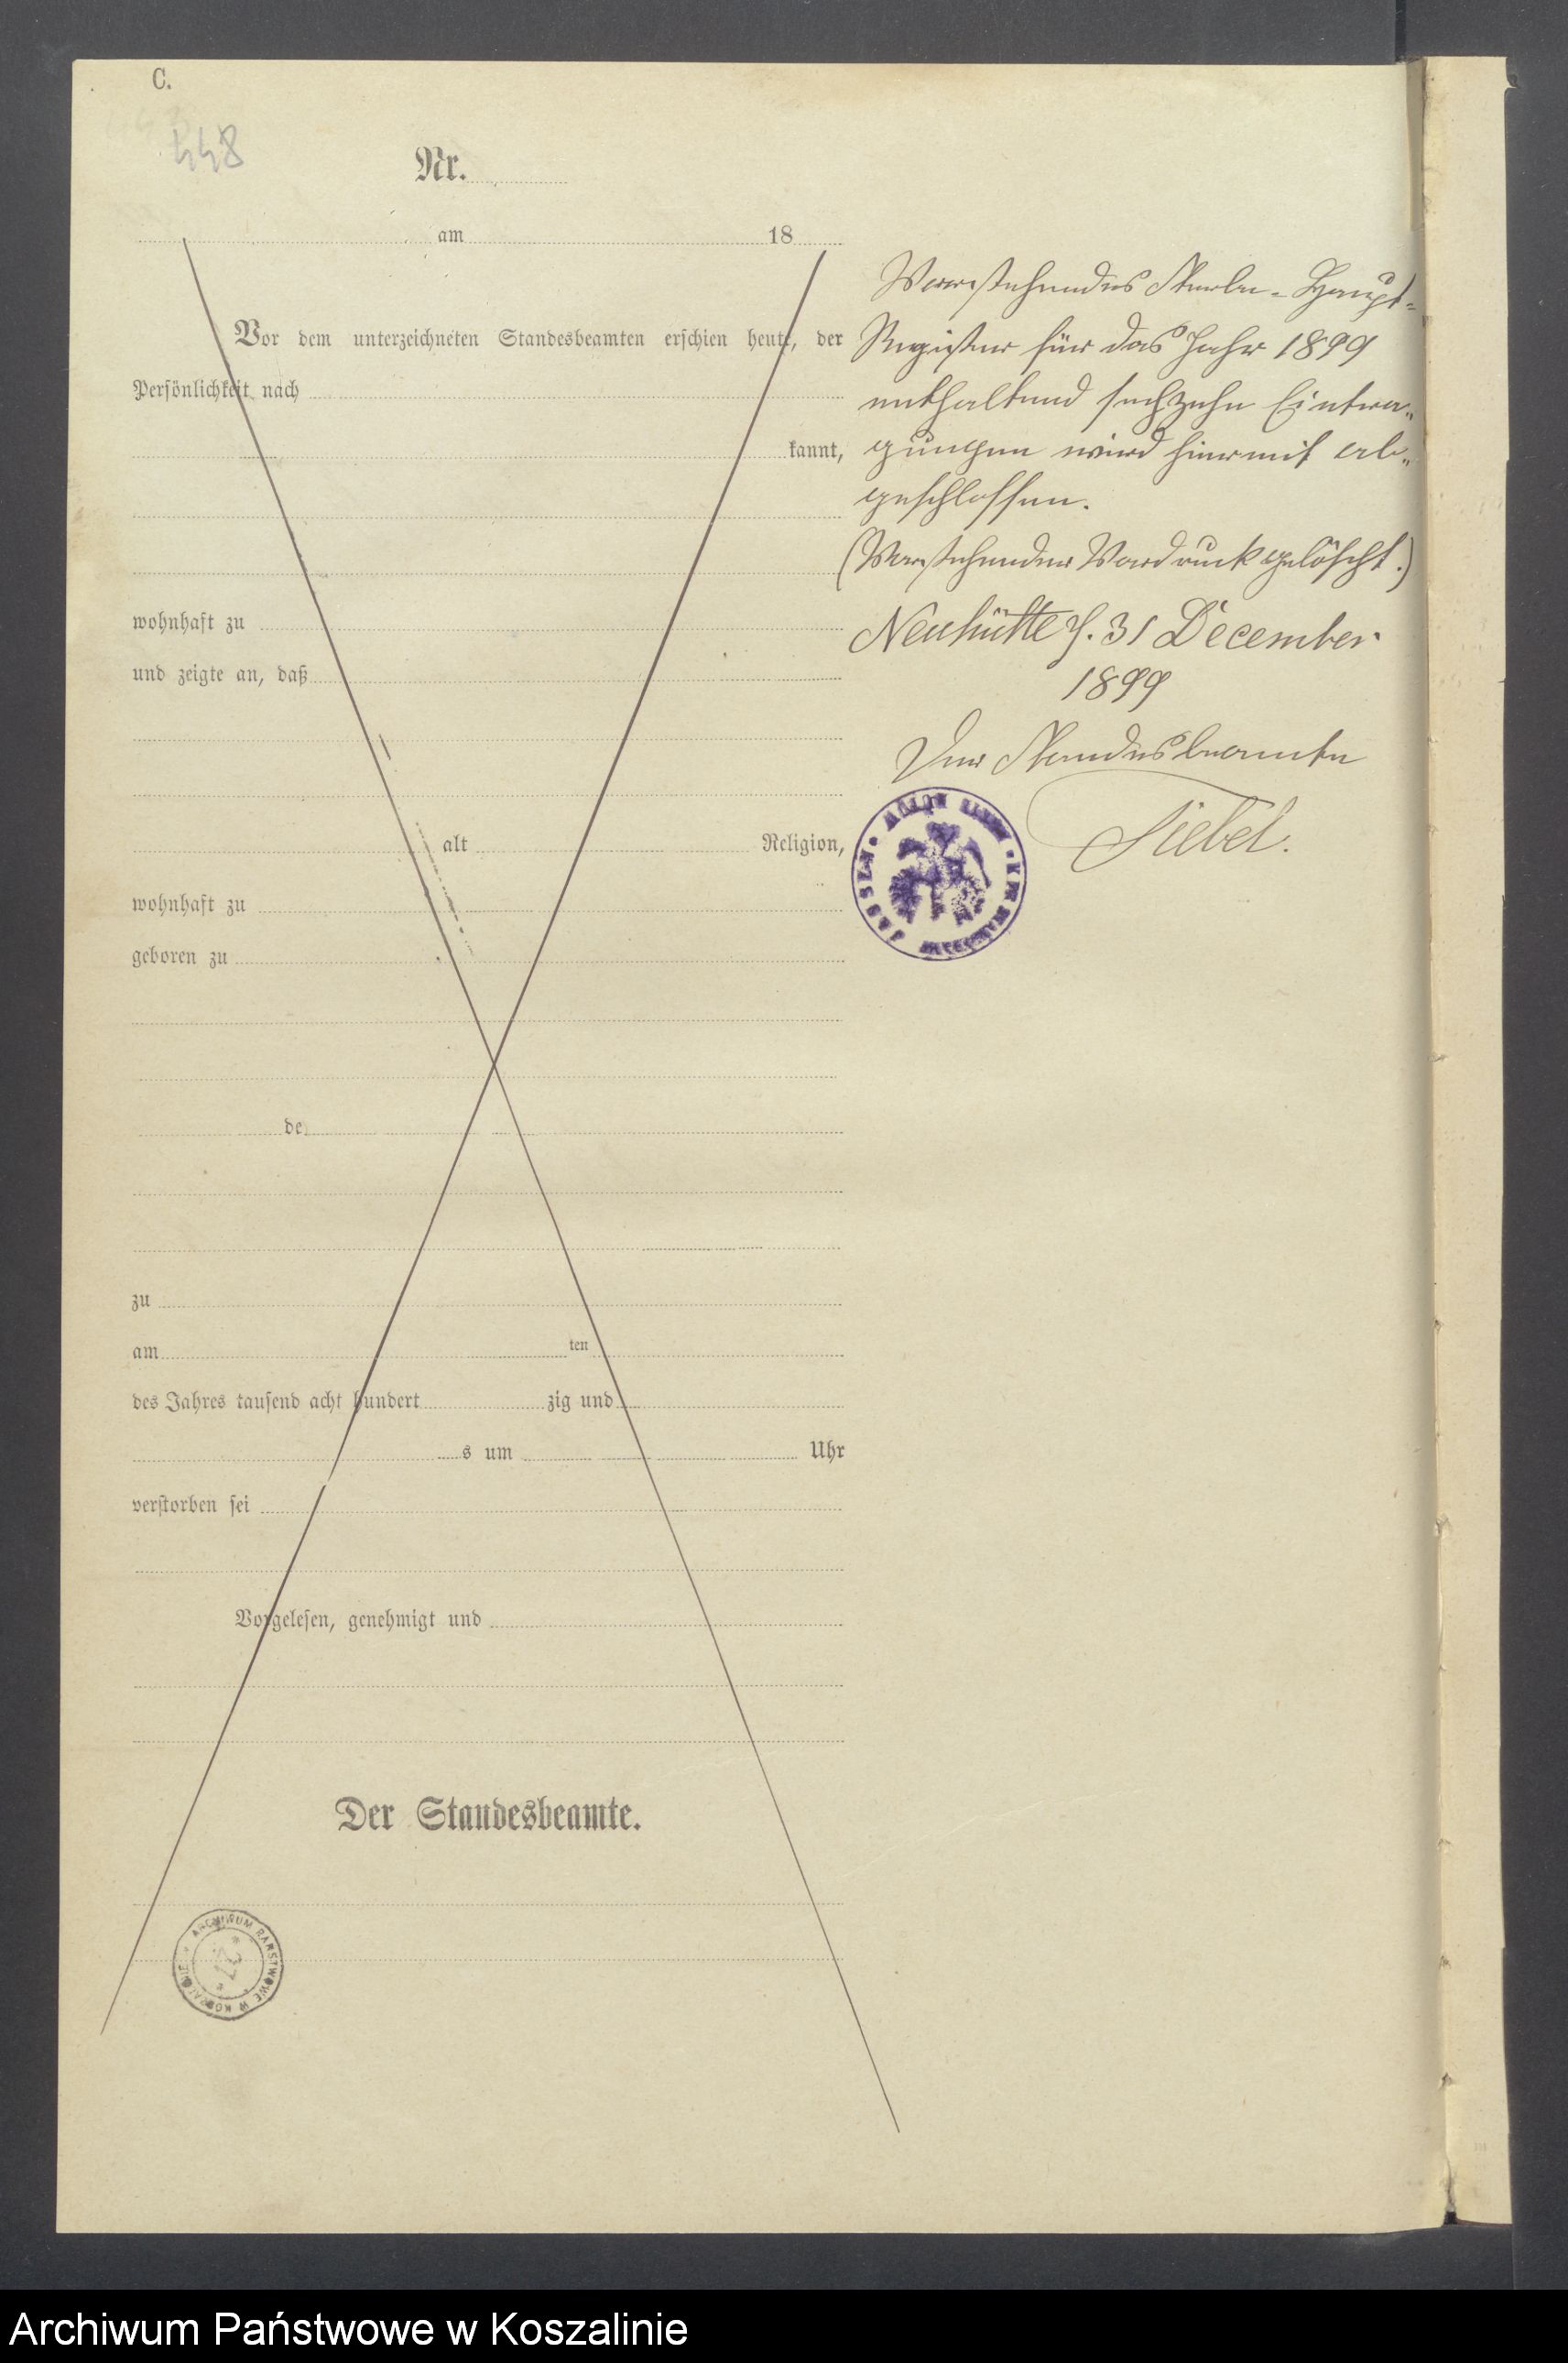 C.
448
Nr.
am 18
Vor dem unterzeichneten Standesbeamten erschien heute, der
Persönlichkeit nach
kannt,
wohnhaft zu
und zeigte an, daß
alt Religion,
wohnhaft zu
geboren zu
de
zu
am ten
des Jahres tausend acht hundert zig und
s um Uhr
verstorben sei
Vorgelesen, genehmigt und
Der Standesbeamte.
ARCHIWUM PAŃSTWOWE W KOSZALINIE
Vorstehendes Sterbe-Haupt-
Register für das Jahr 1899
enthaltend sechzehn Eintra-
gungen wird hiermit ab-
geschlossen.
(Vorstehender Vordruck gelöscht.)
Neuhütte 31 December
1899
Der Standesbeamte
Siebel.
Archiwum Państwowe w Koszalinie